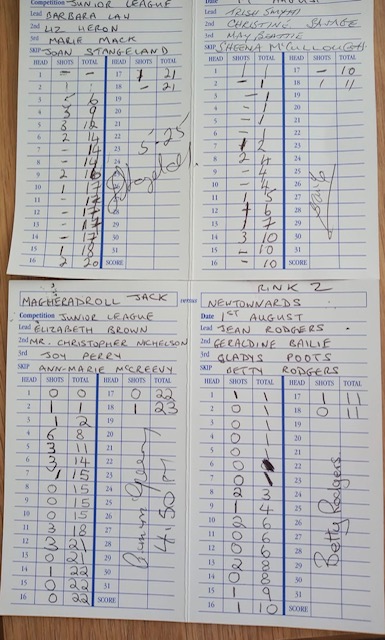 Competition JUNIOR LEAGUE
Lead BARBARA LAW
2nd LIZ HERON
3rd MARIE MACK
SKIP JOAN STANGELAND
HEAD SHOTS TOTAL HEAD SHOTS TOTAL
1 - - 17 1 21
2 1 1 18 - 21
3 5 6 19
4 3 9 20
5 3 12 21
6 2 14 22
7 - 14 23
8 - 14 24
9 2 16
10 1 17
11 - 17
12 - 17 28
13 - 17 29
14 - 17 30
15 1 18 31
16 2 20 SCORE
5.25
Date AUGUST
Lead TRISH SMYTH
2nd CHRISTINE SAVAGE
3rd MAY BEATTIE
SKIP SHEENA McCULLOUGH
HEAD SHOTS TOTAL HEAD SHOTS TOTAL
1 1 1 17 - 10
2 - 1 18 1 11
3 - 1 19
4 - 1 20
5 - 1 21
6 - 1 22
7 1 2 23
8 2 4 24
9 - 4 25
10 - 4 26
11 1 5
12 1 6 28
13 1 7 29
14 3 10 30
15 - 10 31
16 - 10 SCORE
MAGHERADROLL JACK versus
Competition JUNIOR LEAGUE
Lead ELIZABETH BROWN
2nd MR. CHRISTOPHER NICHELSON
3rd JOY PERRY
SKIP ANN-MARIE McCREEVY
HEAD SHOTS TOTAL HEAD SHOTS TOTAL
1 0 0 17 0 22
2 1 1 18 1 23
3 1 2 19
4 6 8 20
5 3 11 21
6 3 14 22
7 1 15 23
8 0 15 24
9 0 15 25
10 0 15 26
11 3 18 27
12 3 21 28
13 0 21 29
14 1 22 30
15 0 22 31
16 0 22 SCORE
4.50 PM
RINK 2
NEWTOWNARDS
Date 1ST AUGUST
Lead JEAN RODGERS
2nd GERALDINE BAILIE
3rd GLADYS POOTS
SKIP BETTY RODGERS
HEAD SHOTS TOTAL HEAD SHOTS TOTAL
1 1 1 17 1 11
2 0 1 18 0 11
3 0 1 19
4 0 1 20
5 0 1 21
6 0 22
7 0 1 23
8 2 3 24
9 1 4 25
10 2 6 26
11 0 6 27
12 0 6 28
13 2 8 29
14 0 8 30
15 1 9 31
16 1 10 SCORE
Betty Rodgers